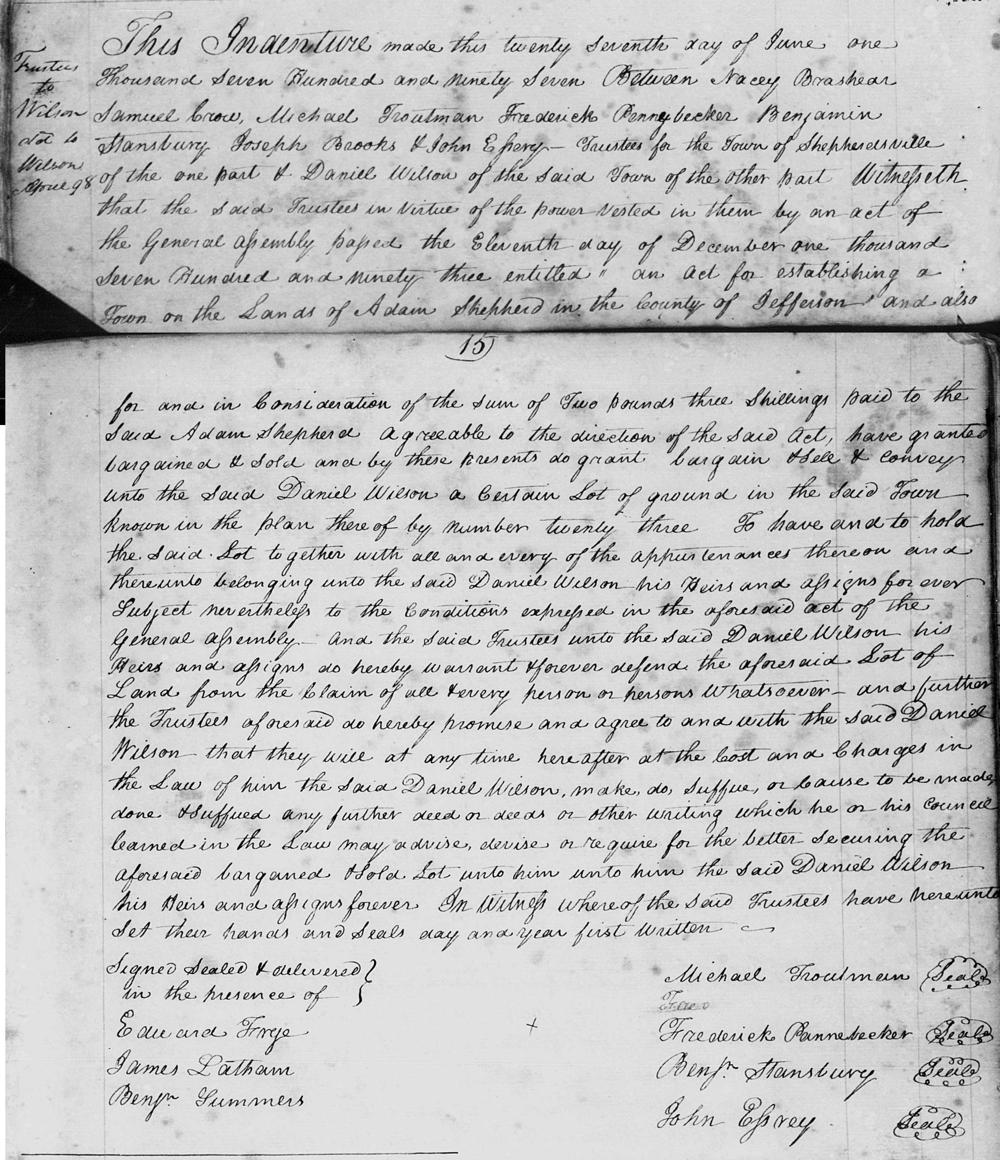 This Indenture made this twenty Seventh day of June one
Thousand Seven Hundred and ninety Seven Between Nacey Brashear
Samuel Crow, Michael Troutman Frederick Pennybecker Benjamin
Stansbury Joseph Brooks & John Essery— Trustees for the Town of Shepherdsville
of the one part & Daniel Wilson of the said Town of the other part Witnesseth
that the said Trustees in Virtue of the power vested in them by an act of
the General assembly passed the Eleventh day of December one thousand
Seven Hundred and ninety three entitled " an Act for establishing a
Town on the Lands of Adam Shepherd in the County of Jefferson" and also
Trustees
to
Wilson
dd to
Wilson
April 98
15
for and in Consideration of the sum of Two pounds three Shillings paid to the
Said Adam Shepherd agreeable to the direction of the said Act, have granted
bargained & Sold and by these presents do grant bargain & Sell & convey
unto the Said Daniel Wilson a Certain Lot of ground in the said Town
known in the plan there of by number twenty three To have and to hold
the said Lot together with all and every of the appurtenances thereon and
thereunto belonging unto the said Daniel Wilson his Heirs and assigns for ever
Subject nevertheless to the Conditions expressed in the aforesaid act of the
General assembly— And the said Trustees unto the said Daniel Wilson his
Heirs and assigns do hereby warrant & forever defend the aforesaid Lot of
Land from the Claim of all & every person or persons Whatsoever— and further
the Trustees aforesaid do hereby promise and agree to and with the said Daniel
Wilson that they will at any time here after at the Cost and Charges in
the Law of him the said Daniel Wilson, make, do, Suffue, or Cause to be made,
done & Suffued any further deed or deeds or other writing which he or his Council
learned in the Law may advise, devise or require for the better Securing the
aforesaid barganed & Sold Lot unto him unto him the said Daniel Wilson
his Heirs and assigns forever In Witness where of the said Trustees have hereunto
Set their hands and Seals day and year first Written
Signed Sealed & delivered }
in the presence of
Edward Frye
James Latham
Benjn Summers
Michael Troutman Seal
Fred
+ Frederick Pannebecker Seal
Benjn Stansbury Seal
John Essrey Seal